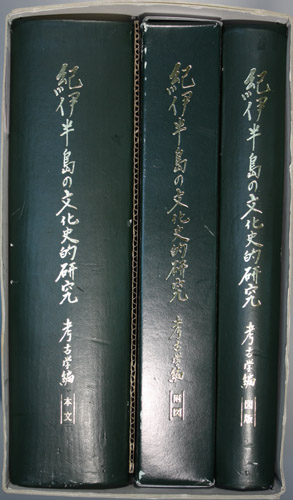 紀伊半島の文化史的研究 考古学編 本文
紀伊半島の文化史的研究 考古学編 附図
紀伊半島の文化史的研究 考古学編 図版